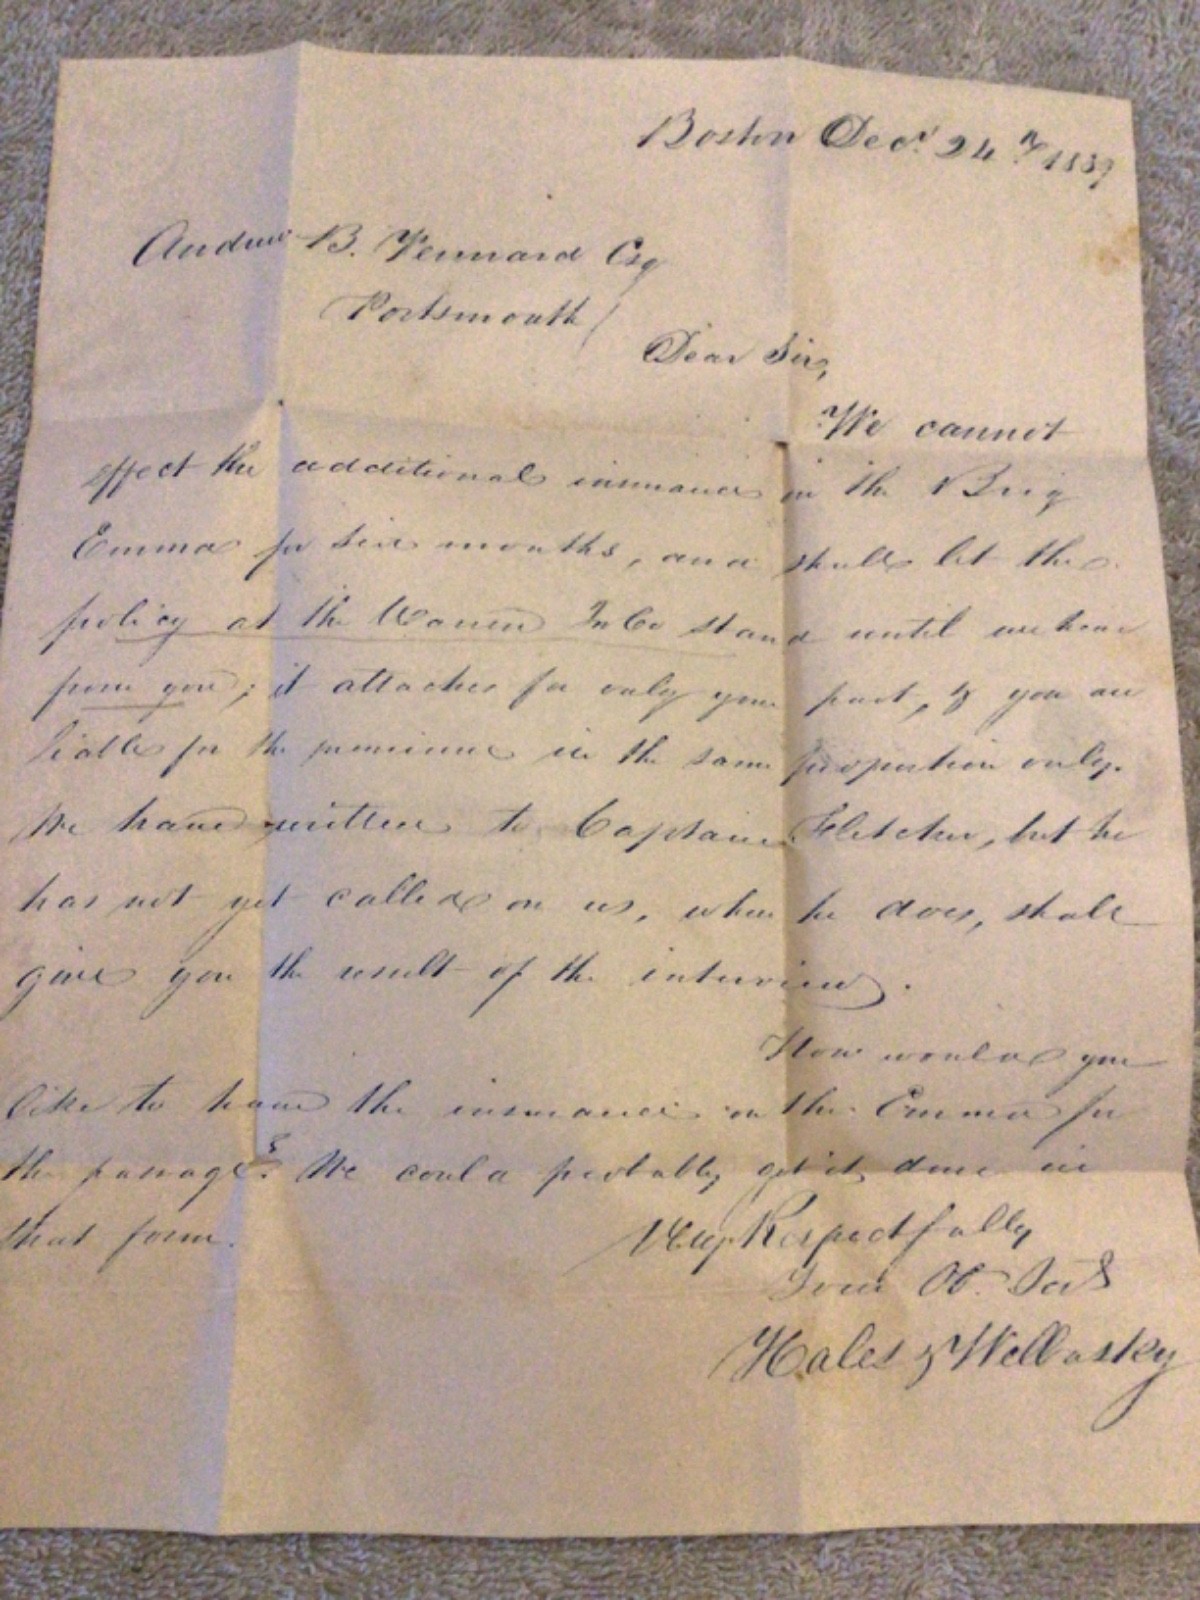 Boston Decr 24th 1839
Andrew B. Vennard Esq
Portsmouth /
Dear Sir,
We cannot
effect the additional insurance on the Brig
Emma for six months, and shall let the
policy at the Warren In Co stand until we hear
from you; it attaches for only your part, & you are
liable for the premium in the same proportion only.
We have written to Captain Fletcher, but he
has not yet called on us, when he does, shall
give you the result of the interview.
How would you
like to have the insurance on the Emma for
the passage? We could probably get it done in
that form.
Very Respectfully
Your Ob. Servts
Hales &